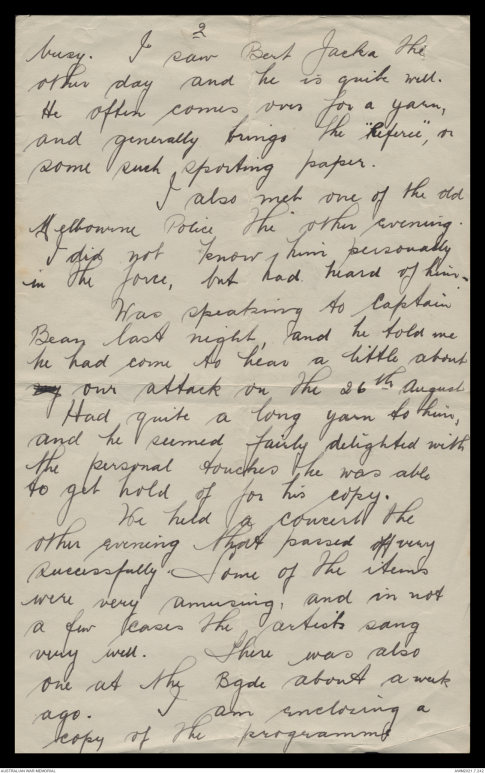 2
busy. I saw Bert Jacka the
other day and he is quite well.
He often comes over for a yarn,
and generally brings the "Referee", or
some such sporting paper.
I also met one of the old
Melbourne Police the other evening.
I did not know him personally
in the force, but had heard of him.
Was speaking to Captain
Bean last night, and he told me
he had come to hear a little about
our attack on the 26th August
Had quite a long yarn to him,
and he seemed fairly delighted with
the personal touches he was able
to get hold of for his copy.
We held a concert the
other evening that passed off very
successfully. Some of the items
were very amusing, and in not
a few cases the artists sang
very well. There was also
one at the Bgde about a week
ago. I am enclosing a
copy of the programme
AUSTRALIAN WAR MEMORIAL